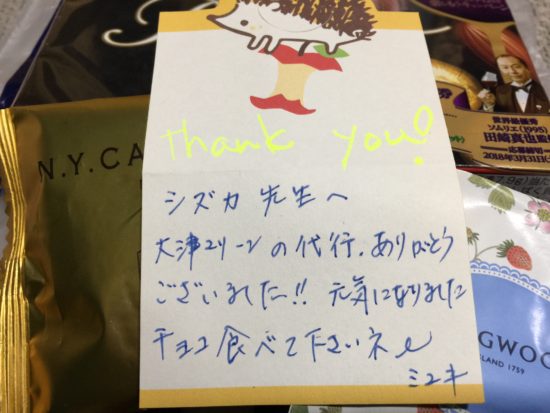 thank you!
シズカ先生へ
大津マリーンの代行、ありがとう
ございました!! 元気になりました
チョコ食べて下さいネ
ミユキ
N.Y.CA
世界最優秀
ソムリエ(1995)
田崎真也監
応募締切
2018年3月31日(
GWOO
LAND 1759